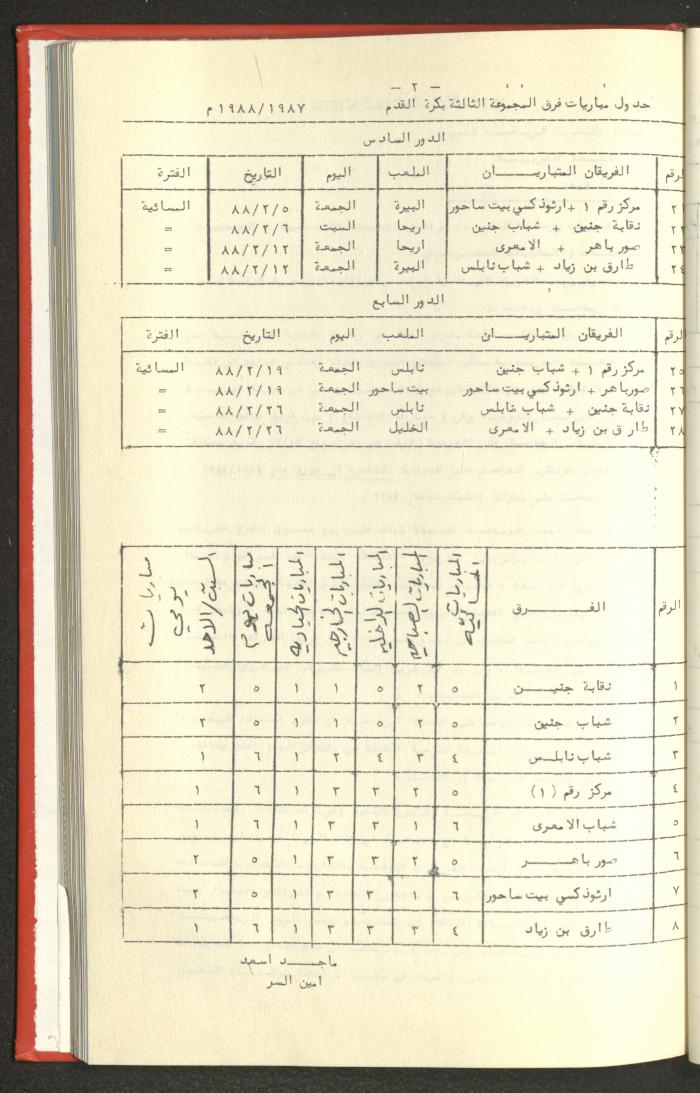 - ٢ -
جدول مباريات فرق المجموعة الثالثة بكرة القدم ١٩٨٨/١٩٨٧ م
الدور السادس
الرقم الفريقان المتباريـــــان الملعب اليوم التاريخ الفترة
٢١ مركز رقم ١ + ارثوذكسي بيت ساحور البيرة الجمعة ٨٨/٢/٥ المسائية
٢٢ نقابة جنين + شباب جنين اريحا السبت ٨٨/٢/٦ =
٢٣ صور باهر + الامعرى اريحا الجمعة ٨٨/٢/١٢ =
٢٤ طارق بن زياد + شباب نابلس البيرة الجمعة ٨٨/٢/١٢ =
الدور السابع
الرقم الفريقان المتباريـــــان الملعب اليوم التاريخ الفترة
٢٥ مركز رقم ١ + شباب جنين نابلس الجمعة ٨٨/٢/١٩ المسائية
٢٦ صورباهر + ارثوذكسي بيت ساحور بيت ساحور الجمعة ٨٨/٢/١٩ =
٢٧ نقابة جنين + شباب نابلس نابلس الجمعة ٨٨/٢/٢٦ =
٢٨ طارق بن زياد + الامعرى الخليل الجمعة ٨٨/٢/٢٦ =
الرقم الفـــــــــرق المباريات المسائيه المباريات الصباحيه المباريات الداخليه المباريات الخارجيه المباريات الحياديه مباريات يوم الجمعه مباريات يومي السبت/الاحد
١ نقابة جنيـــــن ٥ ٢ ٥ ١ ١ ٥ ٢
٢ شباب جنين ٥ ٢ ٥ ١ ١ ٥ ٢
٣ شباب نابلـس ٤ ٣ ٤ ٢ ١ ٦ ١
٤ مركز رقم (١) ٥ ٢ ٣ ٣ ١ ٦ ١
٥ شباب الامعرى ٦ ١ ٣ ٣ ١ ٦ ١
٦ صور باهـــــر ٥ ٢ ٣ ٣ ١ ٥ ٢
٧ ارثوذكسي بيت ساحور ٦ ١ ٣ ٣ ١ ٥ ٢
٨ طارق بن زياد ٤ ٣ ٣ ٣ ١ ٦ ١
ماجـــــد اسعد
امين السر